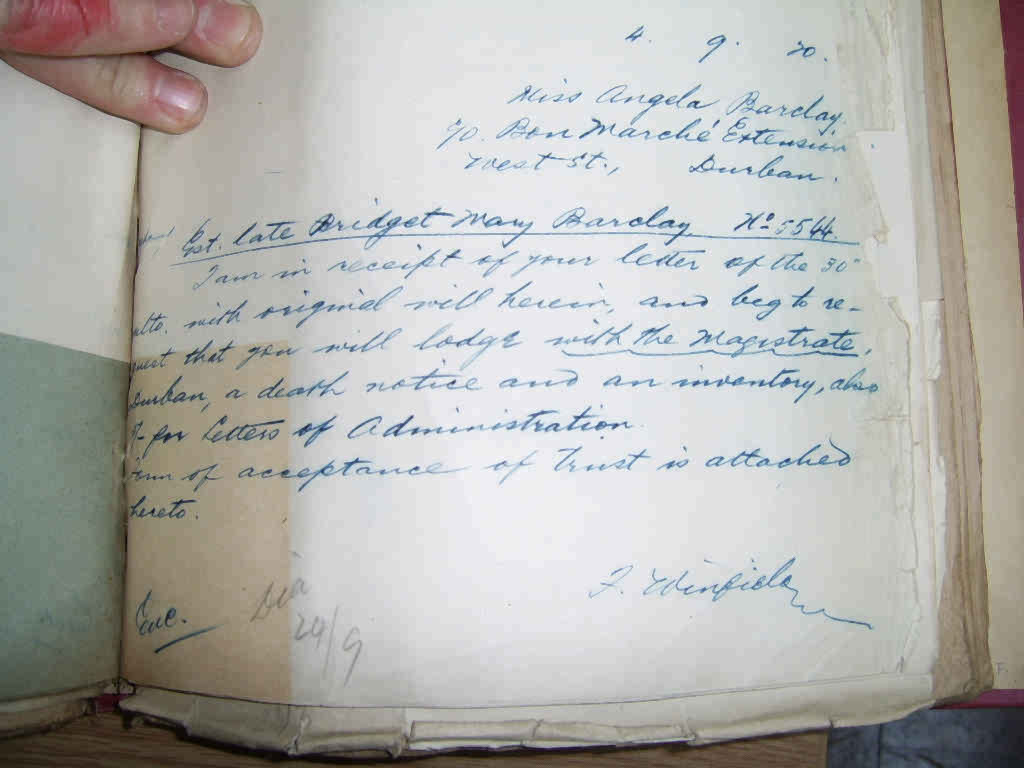 4. 9. 20.
Miss Angela Barclay,
c/o. Bon Marché Extension
West St., Durban.
Est. late Bridget Mary Barclay No 5544.
I am in receipt of your letter of the 30"
ulto. with original will herein, and beg to re-
quest that you will lodge with the Magistrate,
Durban, a death notice and an inventory, also
for Letters of Administration.
of acceptance of Trust is attached
hereto.
F. Winfield
Enc.
24/9